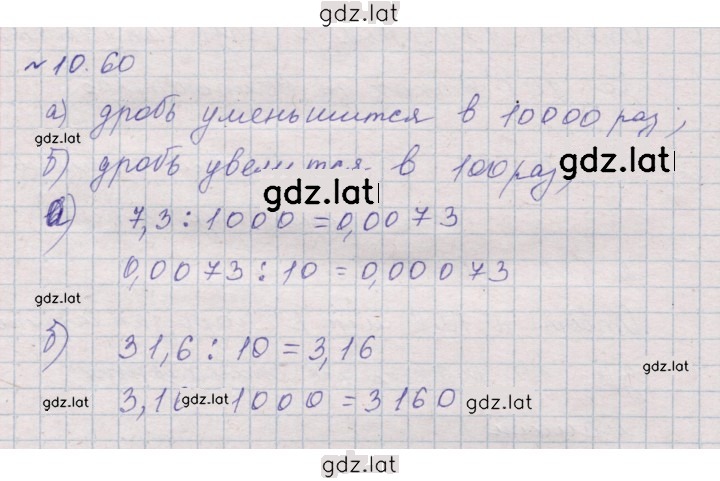 gdz.lat
~10.60
а) дробь уменьшится в 10000 раз,
gdz.lat
б) дробь в 100 раз, gdz.lat
gdz.lat
а) 7,3 : 1000 = 0,0073
0,0073 : 10 = 0,00073
gdz.lat
б) 31,6 : 10 = 3,16
gdz.lat
3,16 1000 = 3160
gdz.lat gdz.lat gdz.lat
gdz.lat